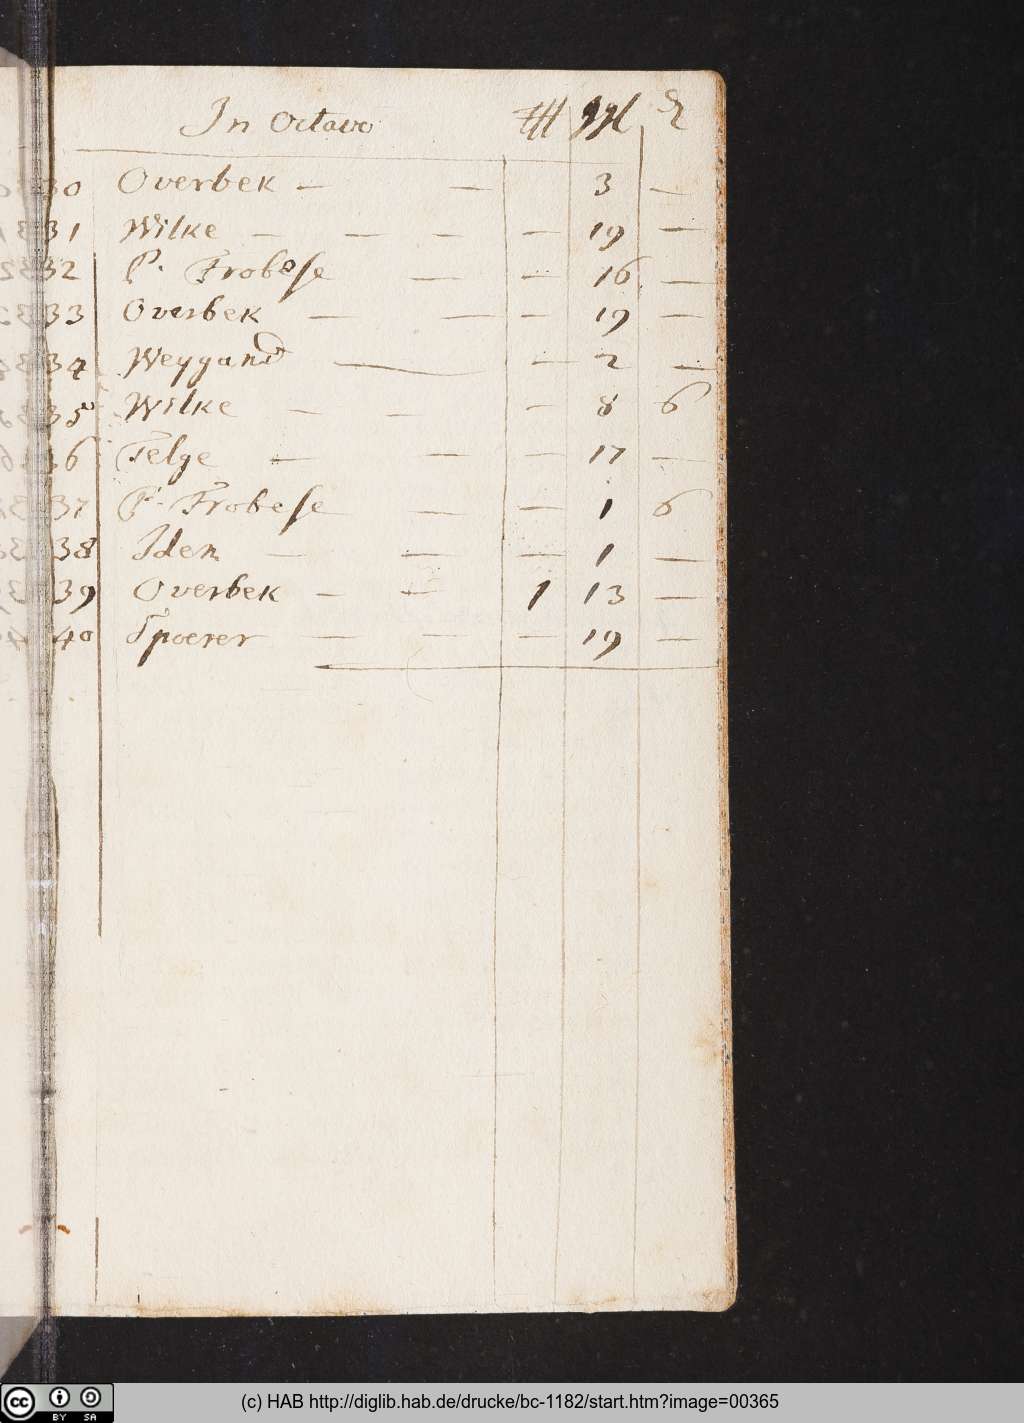 In Octavo
30 Overbek — — 3 —
31 Wilke — — — — 19 —
32 P. Frobese — — 16 —
33 Overbek — — — 19 —
34 Weygand — — 2 —
35 Wilke — — — 8 6
36 Felge — — — 17 —
37 P. Frobese — — 1 6
38 Idem — — — 1 —
39 Overbek — — 1 13 —
40 Spoerer — — — 19 —
(c) HAB http://diglib.hab.de/drucke/bc-1182/start.htm?image=00365
cc BY SA